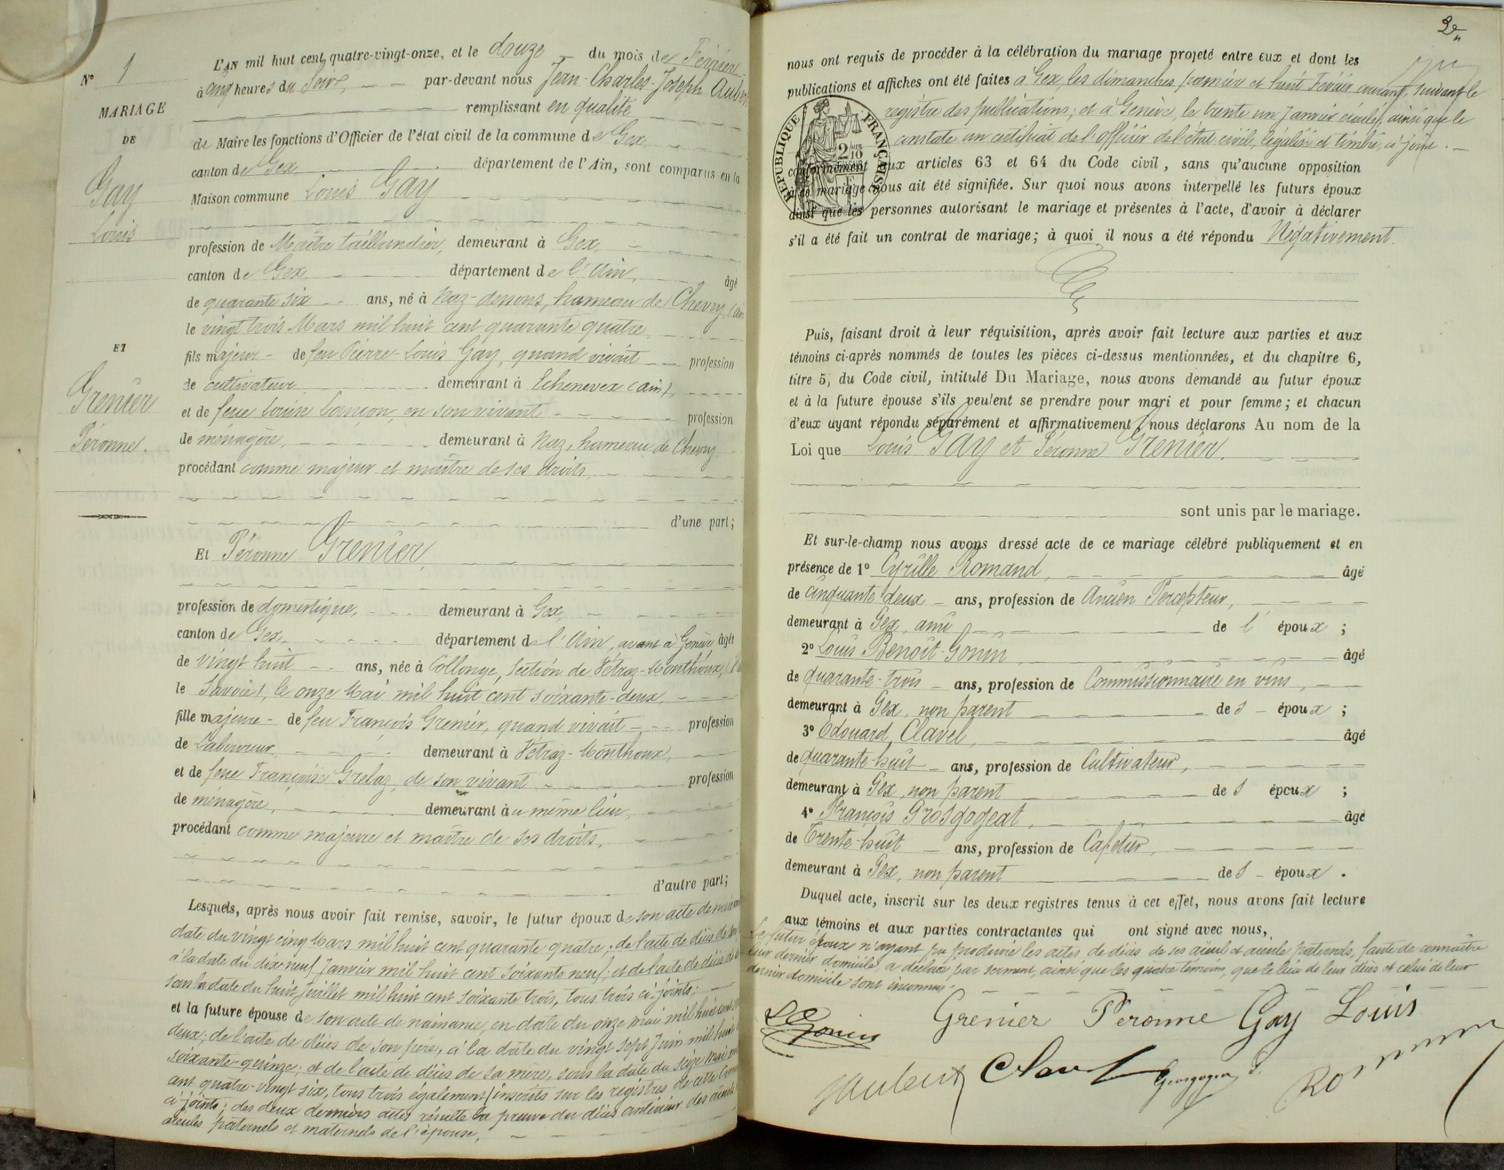 Nº 1
MARIAGE
DE
Gay
Louis
ET
Grenier
Péronne.
L'AN mil huit cent quatre-vingt-onze, et le douze du mois de Février
à cinq heures du Soir, par-devant nous Jean-Charles-Joseph
remplissant en qualité
de Maire les fonctions d'Officier de l'état civil de la commune de Gex
canton de Gex département de l'Ain, sont comparus en la
Maison commune Louis Gay
profession de Maître taillandier, demeurant à Gex,
canton de Gex département de l'Ain, âgé
de quarante six ans, né à Naz-dessous, hameau de Chevry,
le vingt trois Mars mil huit cent quarante quatre
fils majeur de feu Pierre Louis Gay, quand vivait profession
de cultivateur demeurant à Echenevex (Ain),
et de feue Louise en son vivant profession
de ménagère, demeurant à Naz, hameau de Chevry
procédant comme majeur et maître de ses droits
d'une part;
Et Péronne Grenier,
profession de domestique, demeurant à Gex,
canton de Gex département de l'Ain, avant à Genève, âgée
de vingt huit ans, née à Collonge, section de Vétraz-Monthoux,
le Savoie), le onze Mai mil huit cent soixante-deux,
fille majeure de feu François Grenier, quand vivait profession
de Laboureur demeurant à Vétraz-Monthoux,
et de feue Françoise Grelaz, de son vivant profession
de ménagère, demeurant au même lieu,
procédant comme majeure et maître de ses droits,
d'autre part;
Lesquels, après nous avoir fait remise, savoir, le futur époux de son acte de
date du vingt cinq Mars mil huit cent quarante quatre; de l'acte de décès de
à la date du dix neuf Janvier mil huit cent soixante neuf; et de l'acte de décès de
sous la date du huit Juillet mil huit cent soixante trois, tous trois ci-joints;
et la future épouse de son acte de naissance, en date du onze mai mil huit cent
deux; de l'acte de décès de son père, à la date du vingt sept Juin mil huit
soixante-quinze; et de l'acte de décès de sa mère, sous la date du seize Mai
cent quatre-vingt six, tous trois également inscrits sur les registres de cette
ci joints; des deux derniers actes résulte la preuve du décès antérieur des aïeuls
aïeules paternels et maternels de l'épouse,
2e
nous ont requis de procéder à la célébration du mariage projeté entre eux et dont les
publications et affiches ont été faites à Gex, les dimanches premier et huit Février courant, suivant le
registre des publications; et à Genève, le trente un Janvier écoulé, ainsi que le
constate un certificat de l'officier de l'état civil, légalisé et timbré, ci joint.
RÉPUBLIQUE FRANÇAISE
conformément aux articles 63 et 64 du Code civil, sans qu'aucune opposition
à ce mariage nous ait été signifiée. Sur quoi nous avons interpellé les futurs époux
ainsi que les personnes autorisant le mariage et présentes à l'acte, d'avoir à déclarer
s'il a été fait un contrat de mariage; à quoi il nous a été répondu Négativement.
Puis, faisant droit à leur réquisition, après avoir fait lecture aux parties et aux
témoins ci-après nommés de toutes les pièces ci-dessus mentionnées, et du chapitre 6,
titre 5, du Code civil, intitulé Du Mariage, nous avons demandé au futur époux
et à la future épouse s'ils veulent se prendre pour mari et pour femme; et chacun
d'eux ayant répondu séparément et affirmativement, nous déclarons Au nom de la
Loi que Louis Gay et Péronne Grenier.
sont unis par le mariage.
Et sur-le-champ nous avons dressé acte de ce mariage célébré publiquement et en
présence de 1º Cyrille Romand, âgé
de cinquante deux ans, profession de Ancien Percepteur,
demeurant à Gex, ami de l'époux;
2º Louis Benoît-Gonin, âgé
de quarante-trois ans, profession de Commissionnaire en vins,
demeurant à Gex, non parent des époux;
3º Edouard Clavel, âgé
de quarante-huit ans, profession de Cultivateur,
demeurant à Gex, non parent des époux;
4º François Grosgogeat, âgé
de Trente-huit ans, profession de Cafetier,
demeurant à Gex, non parent des époux.
Duquel acte, inscrit sur les deux registres tenus à cet effet, nous avons fait lecture
aux témoins et aux parties contractantes qui ont signé avec nous,
Le futur époux n'ayant pu produire les actes de décès de ses aïeul et aïeule paternels, faute de connaître
leur dernier domicile, a déclaré par serment, ainsi que les quatre témoins, que le lieu de leur décès et celui de leur
dernier domicile sont inconnus.
Gonin Grenier Péronne Gay Louis
Clavel Romand